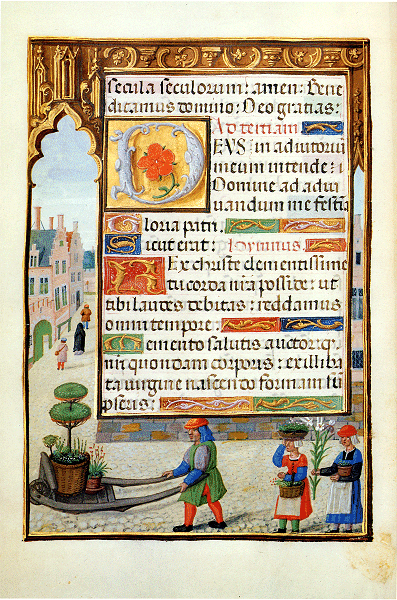 secula seculorum: amen: Bene
dicamus domino: Deo gratias:
Ad tertiam
DEUS in adiutoriu
meum intende:
Domine ad adiu
uandum me festia
Gloria patri
Sicut erat: Hymnus.
Rex christe clementissime
tu corda nra posside: ut
tibi laudes debitas: reddamus
omni tempore:
Memento salutis auctor: q
nri quondam corporis: ex illiba
ta virgine nascendo formam su
pseris: